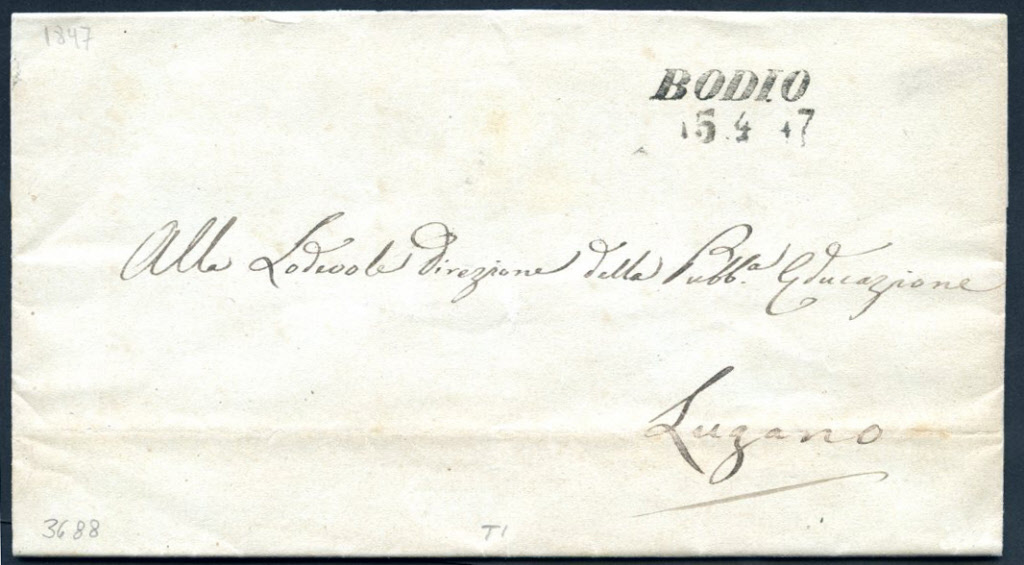 1847
BODIO
15 4 47
Alla Lodevole Direzione della Pubb.ª Educazione
Lugano
3688
TI